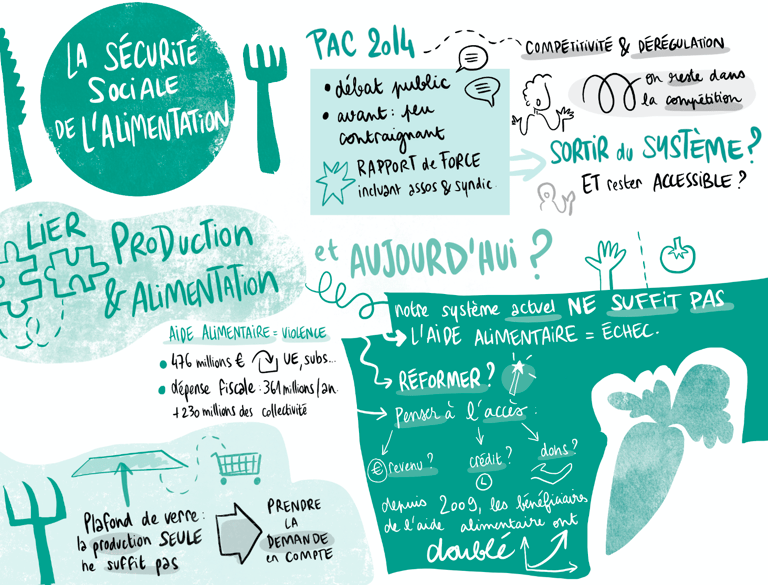 LA SÉCURITÉ
SOCIALE
DE L'ALIMENTATION
PAC 2014
COMPÉTITIVITÉ & DÉRÉGULATION
• débat public
• avant : peu
contraignant
RAPPORT de FORCE
incluant assos & syndic.
on reste dans
la compétition
SORTIR du SYSTÈME ?
ET rester ACCESSIBLE ?
LIER
PRODUCTION
& ALIMENTATION
AIDE ALIMENTAIRE = VIOLENCE
• 476 millions € UE, subs...
• dépense fiscale : 361 millions/an.
+ 230 millions des collectivité
Plafond de verre :
la production SEULE
ne suffit pas
PRENDRE
LA
DEMANDE
en COMPTE
et AUJOURD'HUI ?
notre système actuel NE SUFFIT PAS
L'AIDE ALIMENTAIRE = ÉCHEC.
RÉFORMER ?
Penser à l'accès :
€ revenu ?
crédit ?
dons ?
depuis 2009, les bénéficiaires
de l'aide alimentaire ont
doublé